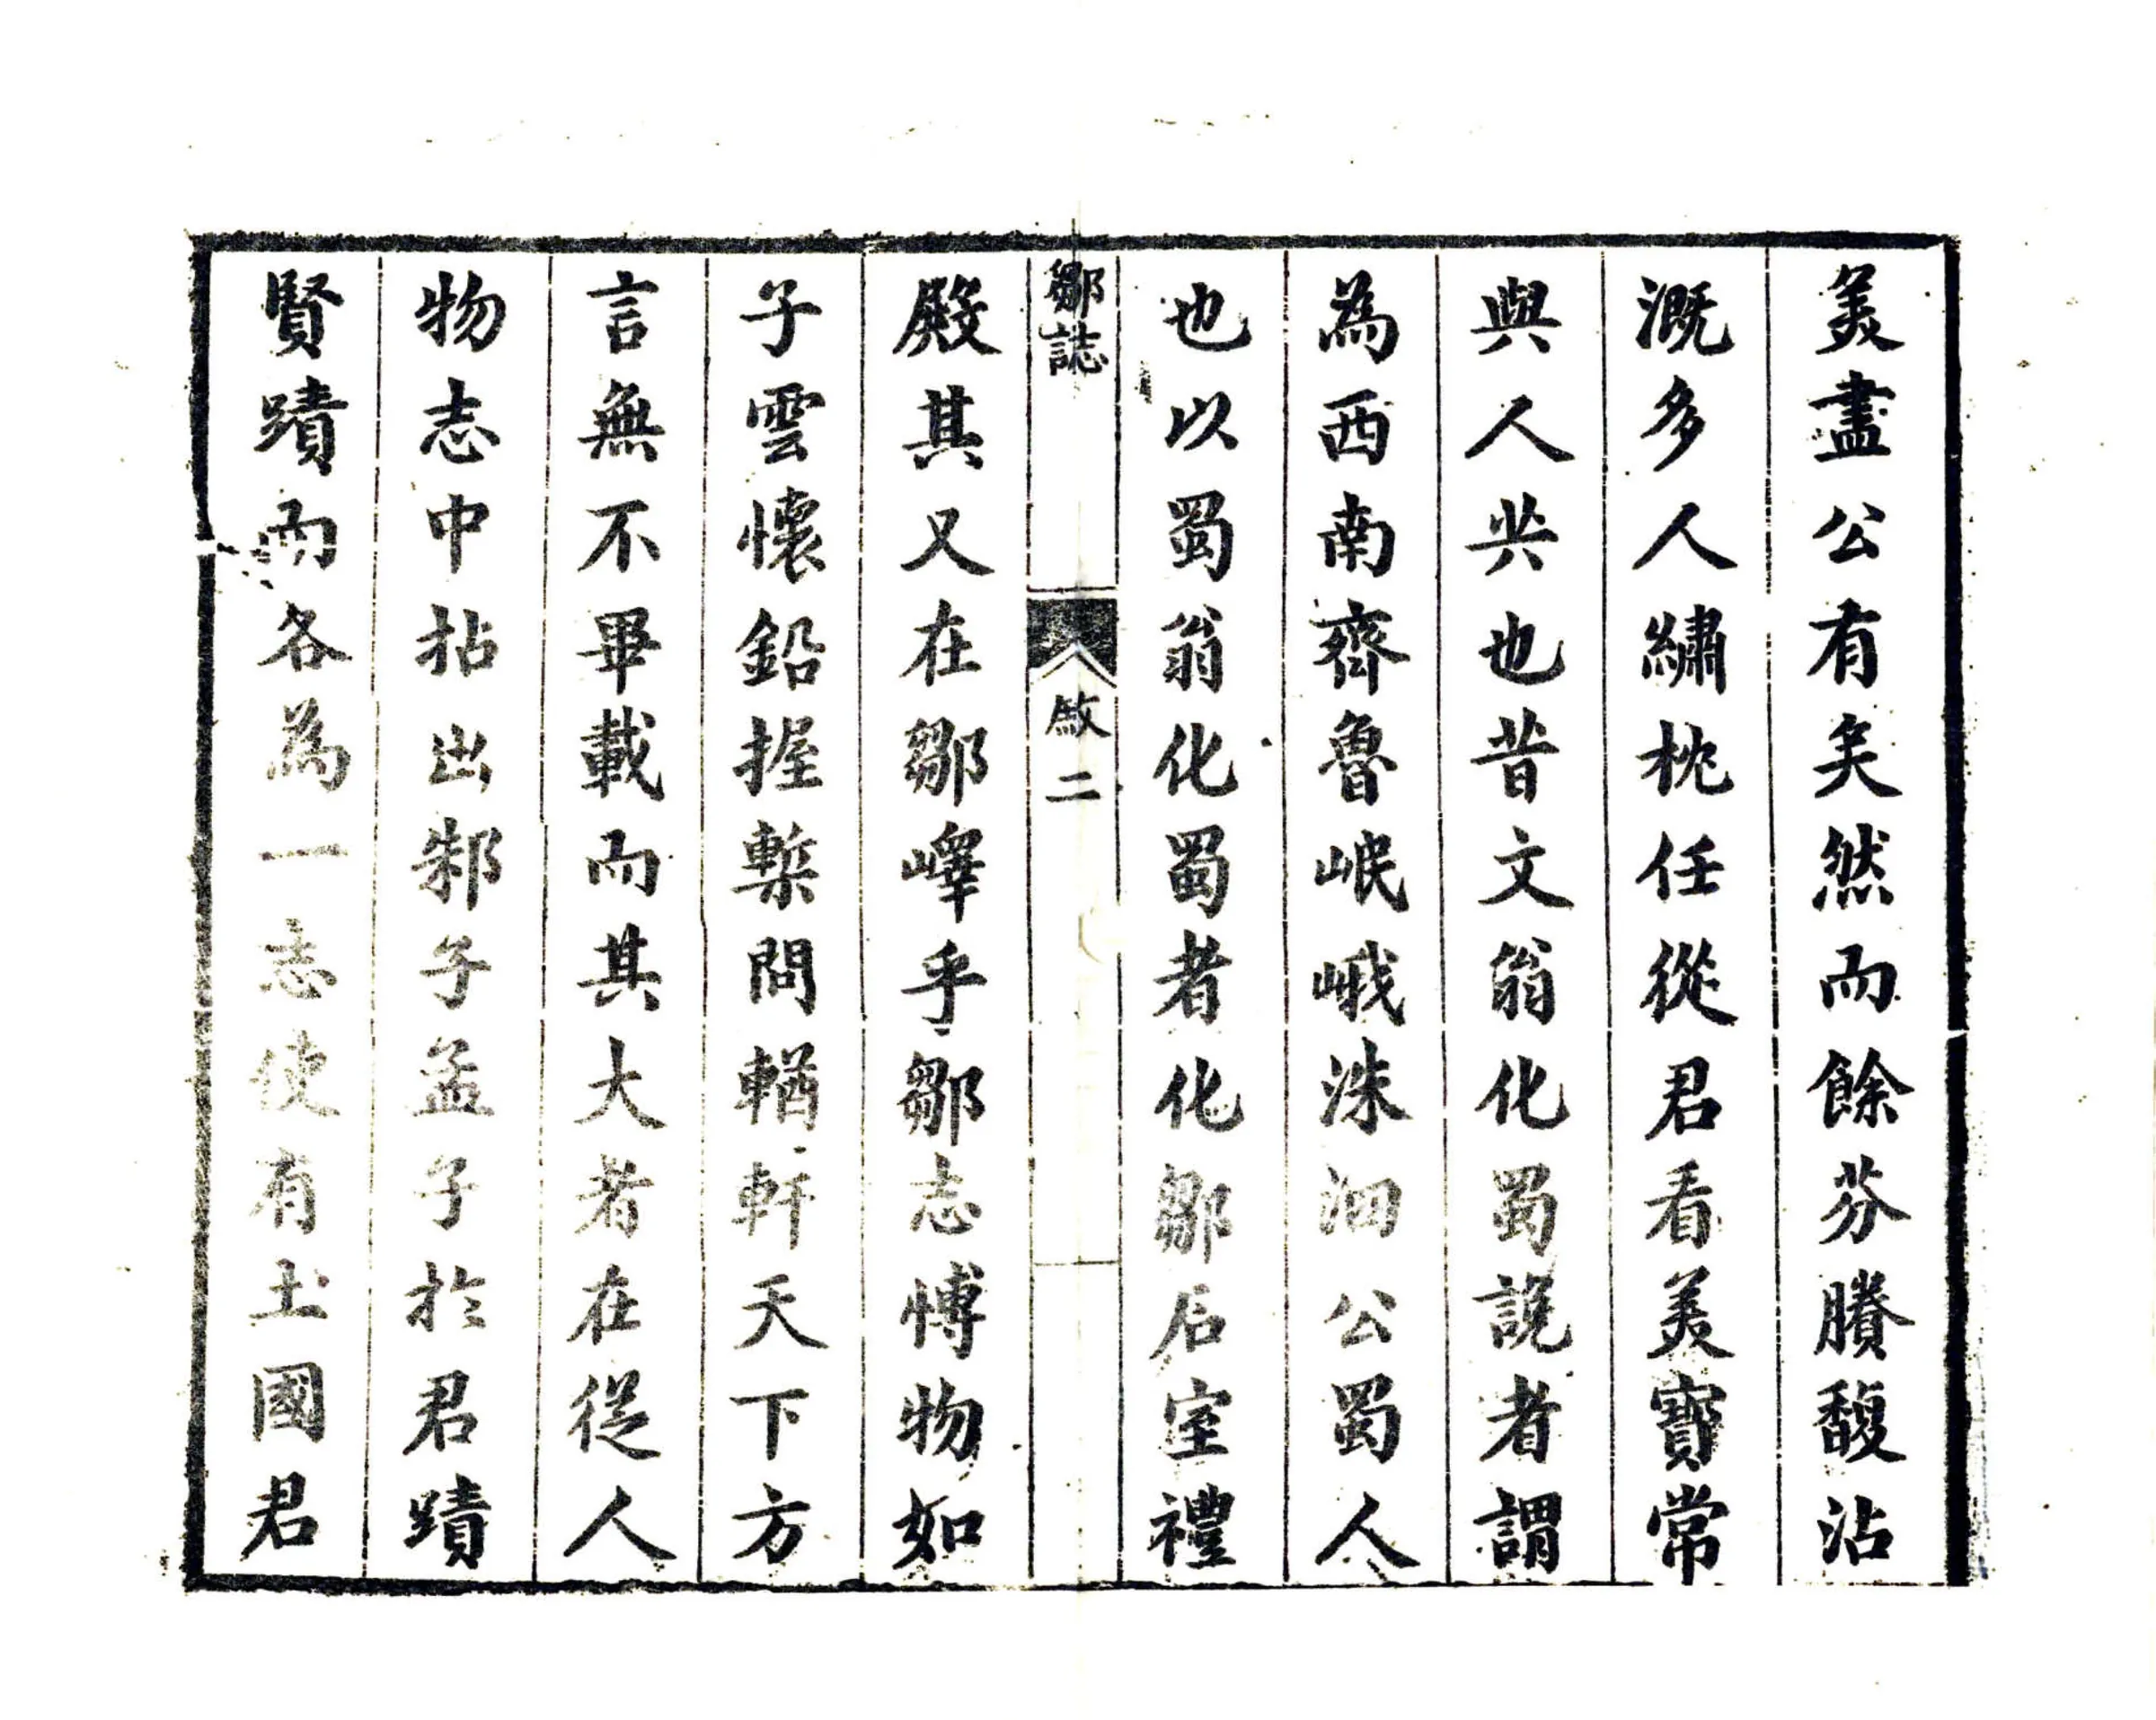 美盡公有矣然而餘芬賸馥沾
溉多人繡枕任從君看美寶常
與人共也昔文翁化蜀說者謂
為西南齊魯岷峨洙泗公蜀人
也以蜀翁化蜀者化鄒石室禮
鄒誌
敘二
殿其又在鄒嶧乎鄒志博物如
子雲懷鉛握槧問輶軒天下方
言無不畢載而其大者在從人
物志中拈出邾子孟子於君蹟
賢蹟而各為一志使有土國君